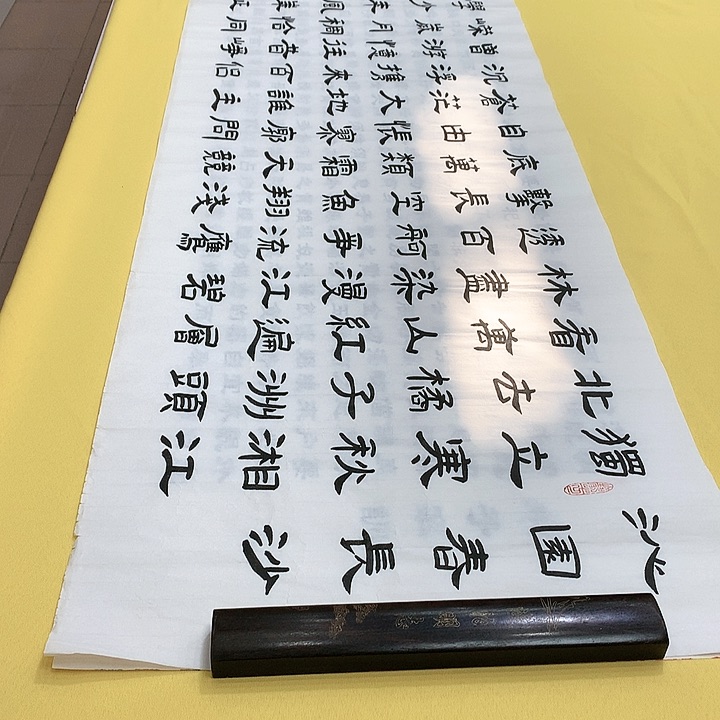 沁園春長沙
獨立寒秋湘江
北去橘子洲頭
看萬山紅遍層
林盡染漫江碧
透百舸爭流鷹
擊長空魚翔淺
底萬類霜天競
自由悵寥廓問
蒼茫大地誰主
沉浮攜來百侶
曾游憶往昔崢
嶸歲月稠恰同
學少年風華正